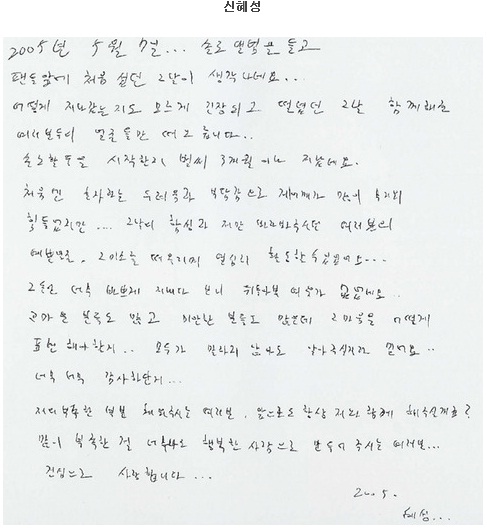 신혜성
2005년 5월 7일... 솔로앨범을 들고
팬들앞에 처음 섰던 그날이 생각나네요...
어떻게 지나갔는지도 모르게 긴장되고 떨렸던 그날 함께해준
여러분들의 얼굴들만 떠오릅니다..
솔로활동을 시작한지 벌써 3개월이나 지났네요.
처음엔 혼자라는 두려움과 부담감으로 제어깨가 많이
힘들었지만.... 그날의 함성과 저만 바라봐주시던 여러분의
예쁜만큼, 그 미소를 떠올리며 열심히 활동할수있었어요...
그동안 너무 바쁘게 지내다 보니 뒤돌아볼 여유가 없었네요..
고마운 분들도 많고 미안한 분들도 많은데 그마음을 어떻게
표현해야할지.. 모두가 말하지 않아도 알아주실거라 믿어요..
너무 너무 감사하단거...
저의 부족한 부분 채워주시는 여러분, 앞으로도 항상 저와함께 해주실거죠?
많이 부족한 절 너무나도 행복한 사람으로 만들어 주시는 여러분...
진심으로 사랑합니다...
2005.
혜성...